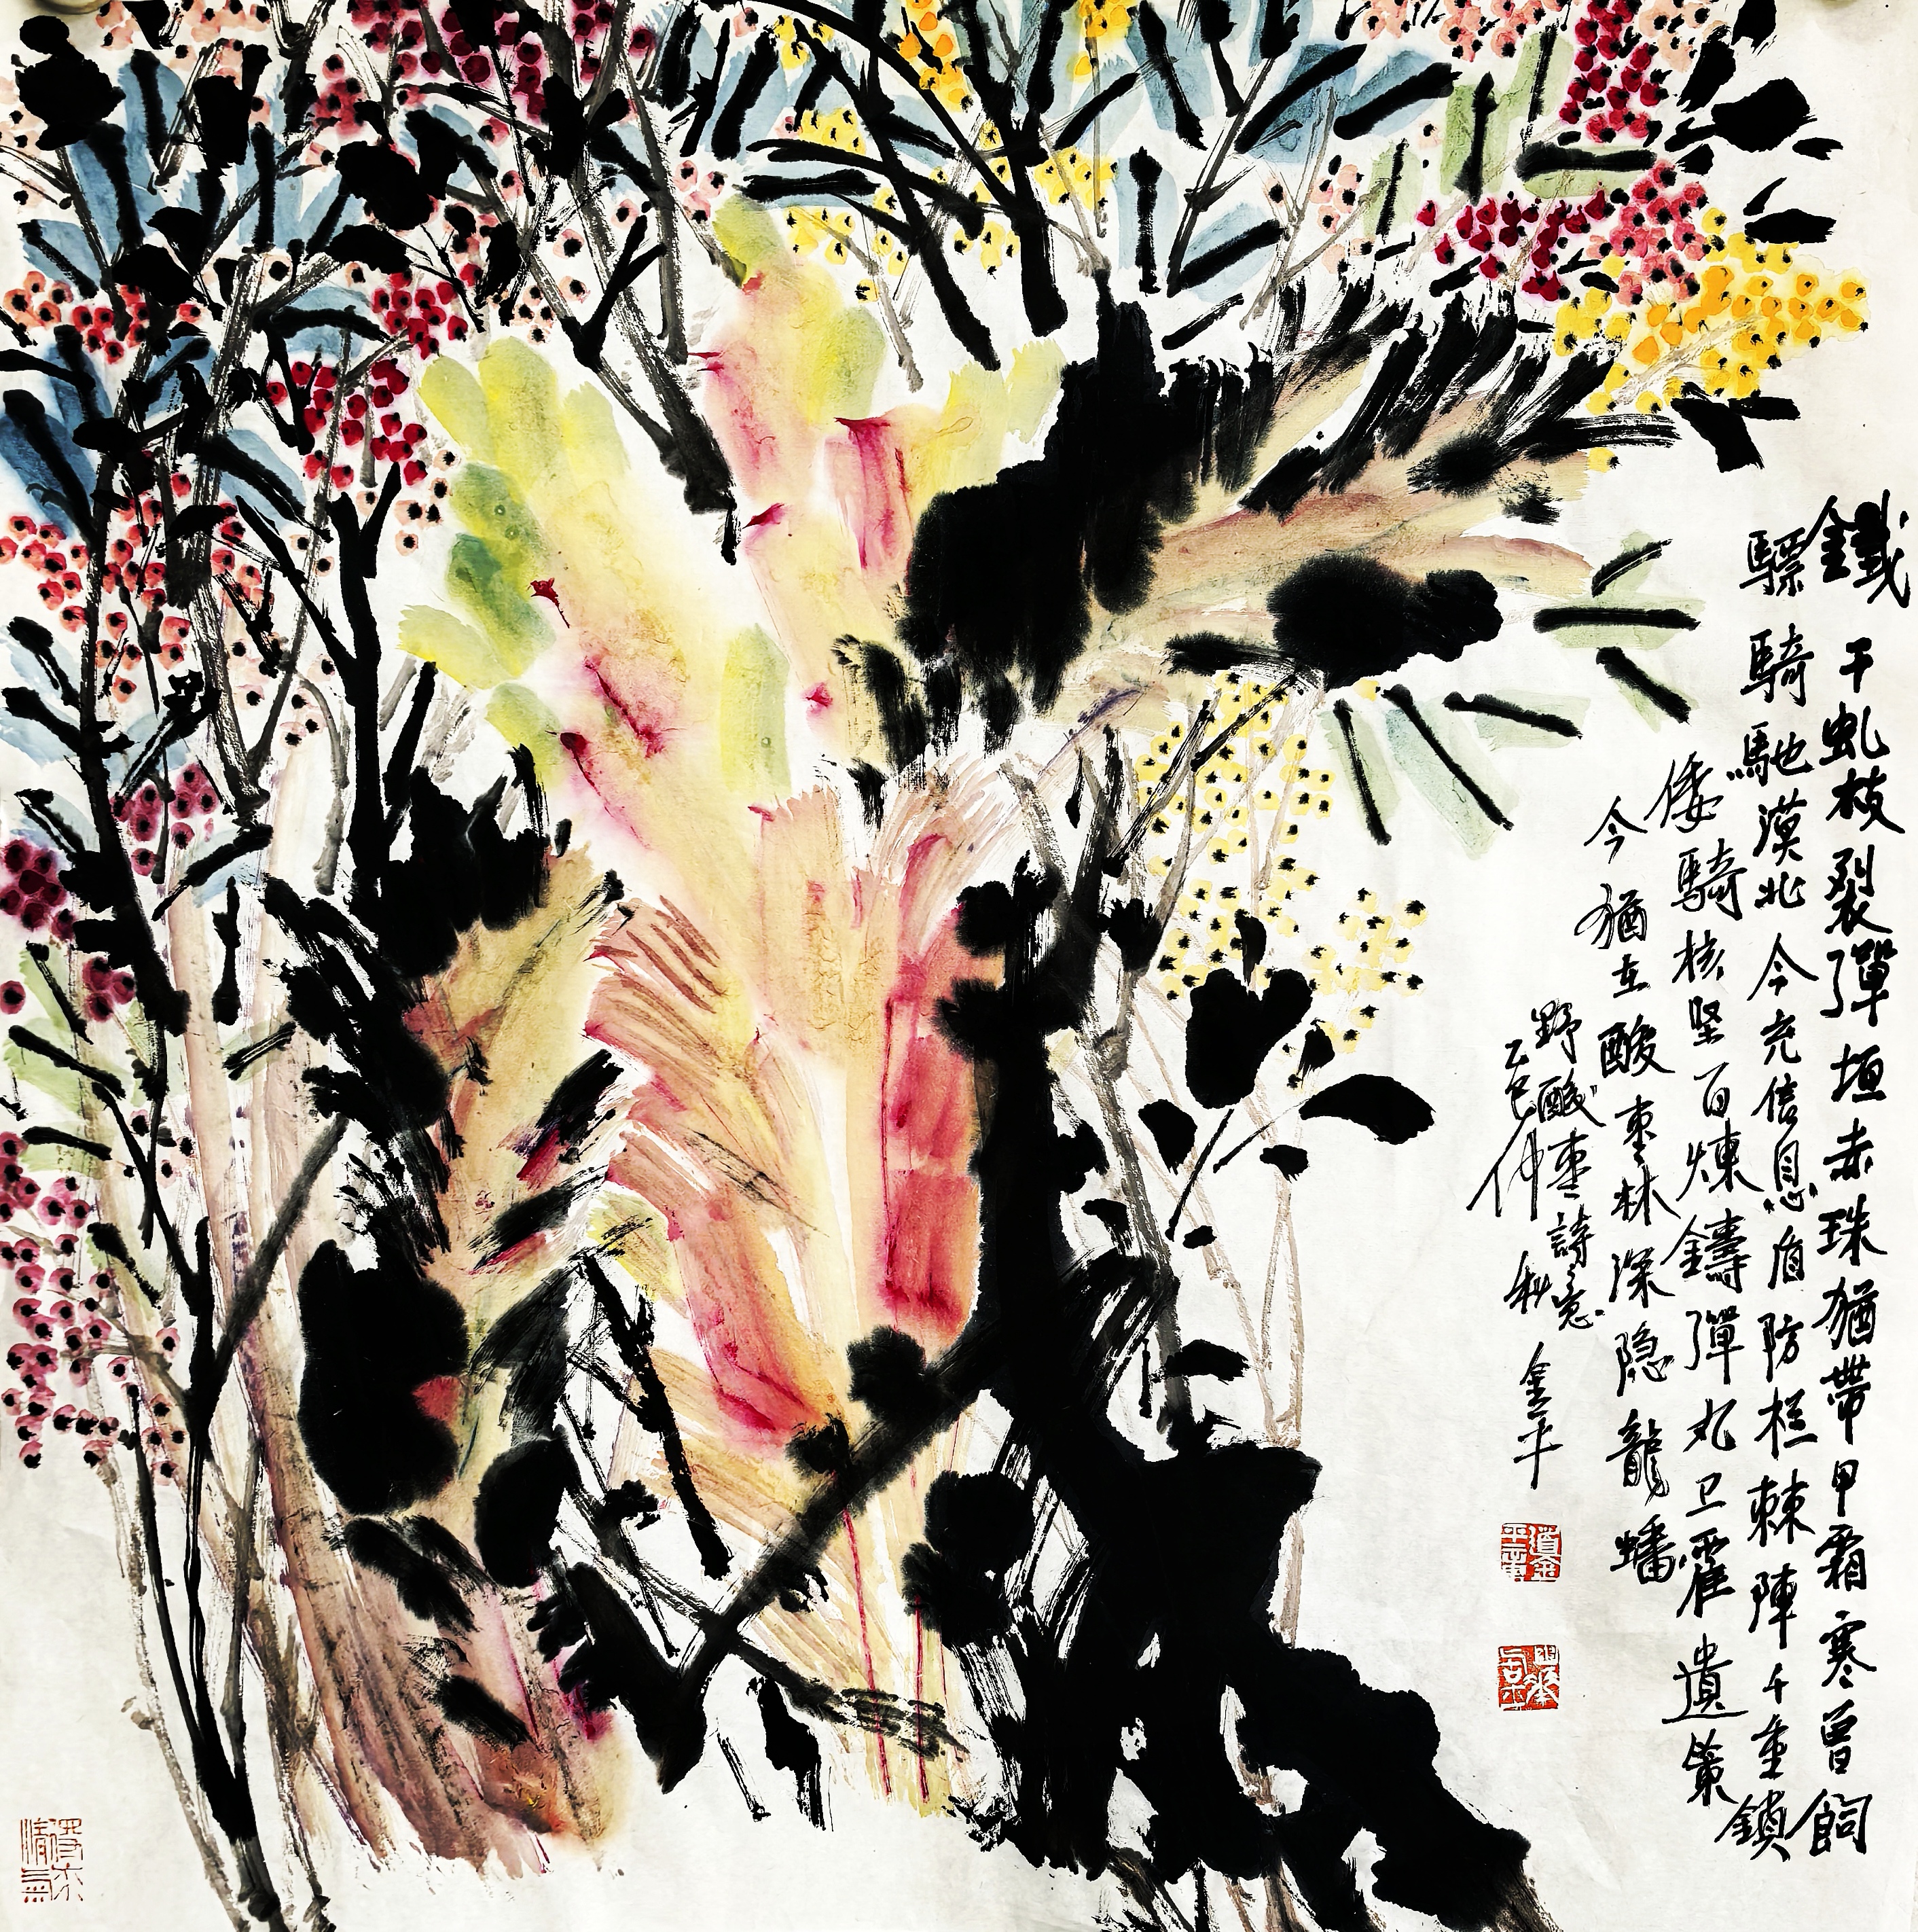 鐵干虬枝裂彈垣赤珠猶帶甲霜寒曾飼
驃騎馳漠北今充信息盾防栏棘陣千重鎖
倭騎核坚百煉鑄彈丸卫霍遺策
今猶在酸枣林深隐龍蟠
野酸棗詩意
乙巳仲秋金平